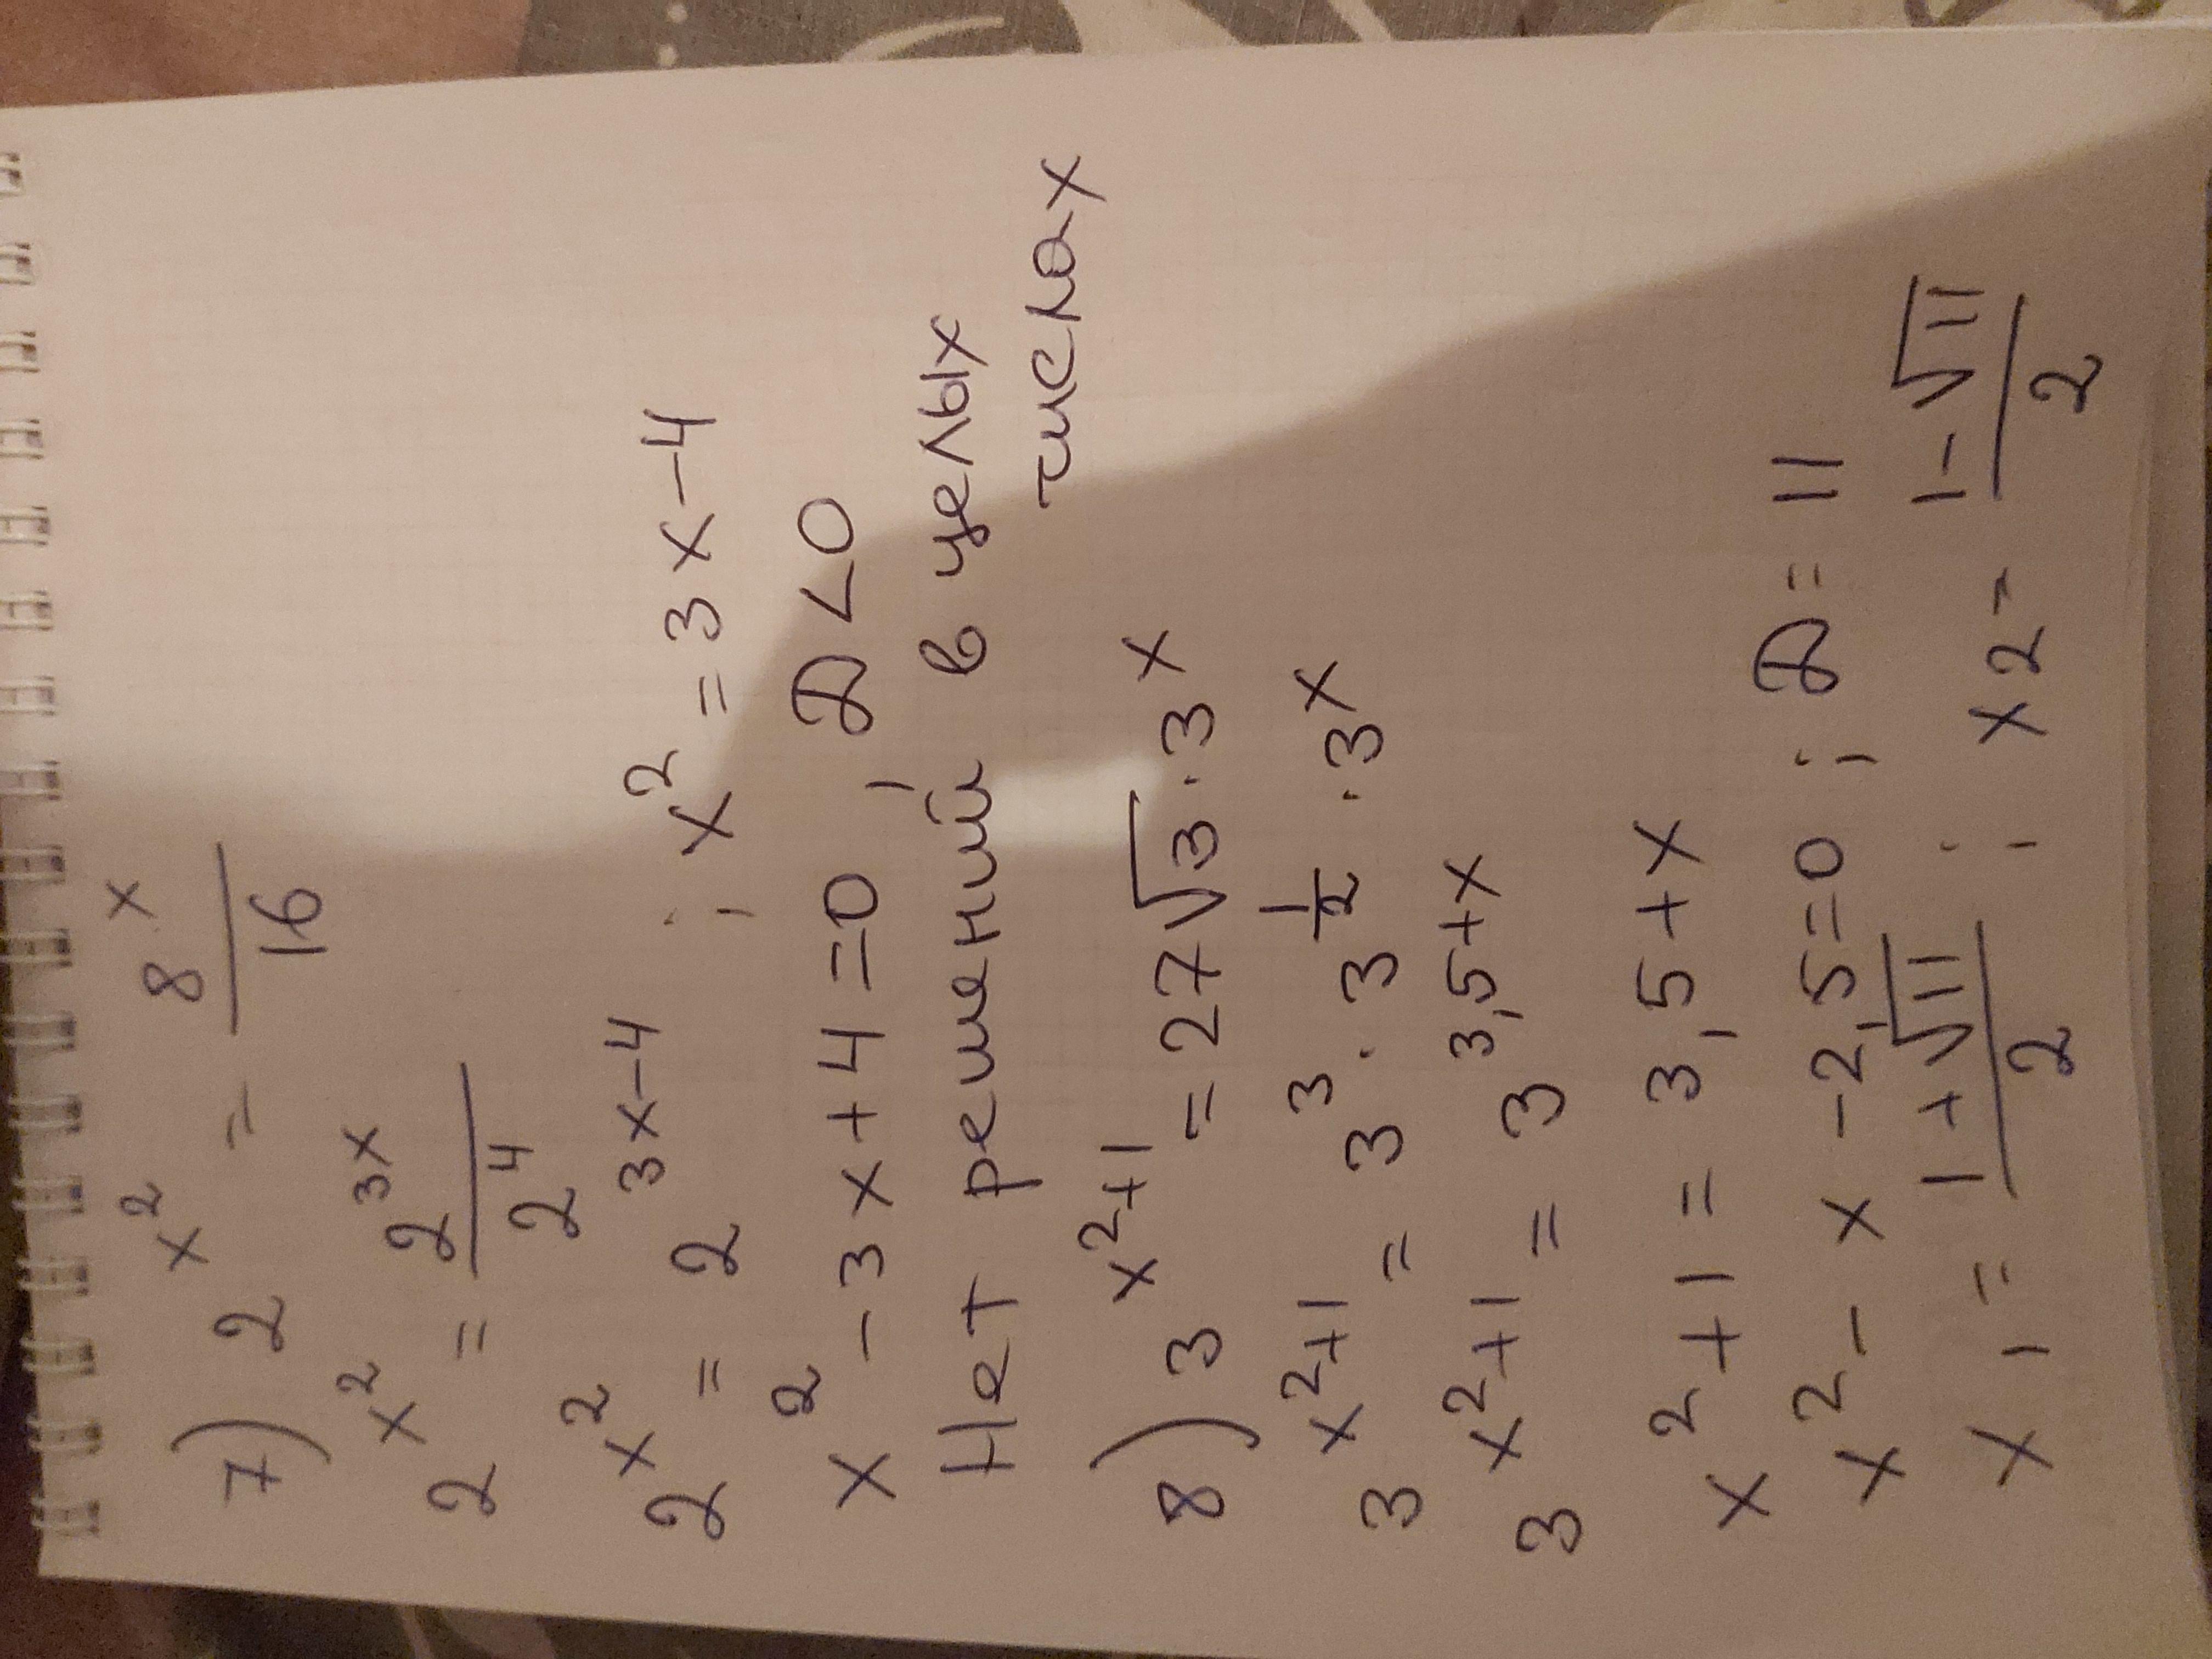 7) 2^{x^2} = \frac{8^x}{16}
2^{x^2} = \frac{2^{3x}}{2^4}
2^{x^2} = 2^{3x-4} ; x^2 = 3x-4
x^2 - 3x + 4 = 0, D < 0
Нет решений в целых
числах
8) 3^{x^2+1} = 27\sqrt{3} \cdot 3^x
3^{x^2+1} = 3^3 \cdot 3^{\frac{1}{2}} \cdot 3^x
3^{x^2+1} = 3^{3,5+x}
x^2+1 = 3,5+x
x^2 - x - 2,5 = 0 ; D = 11
x_1 = \frac{1+\sqrt{11}}{2} ; x_2 = \frac{1-\sqrt{11}}{2}